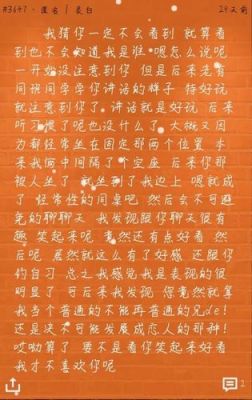 #3647 · 匿名 | 表白
24天前
我猜你一定不会看到 就算看
到也不会知道我是谁 嗯怎么说呢
一开始没注意到你 但是后来老有
同班同学学你讲话的样子 特好说
就注意到你了 讲话就是好说 后来
听习惯了呢也没什么了 大概又因
为都经常坐在固定那两个位置 本
来我俩中间隔了个空座 后来你那
被人坐了 就坐到了我边上 嗯就成
了 经常性的同桌吧 然后会不可避
免的聊聊天 我发现跟你聊天很有
趣 笑起来呢 竟然还有点好看 然
后呢 居然就这么有了好感 还跟你
约自习 总之我感觉我是表现的很
明显了 可后来我发现 你竟然就算
我当个普通的不能再普通的兄de!
还是决不可能发展成恋人的那种!
哎呦算了 要不是看你笑起来好看
我才不喜欢你呢
2